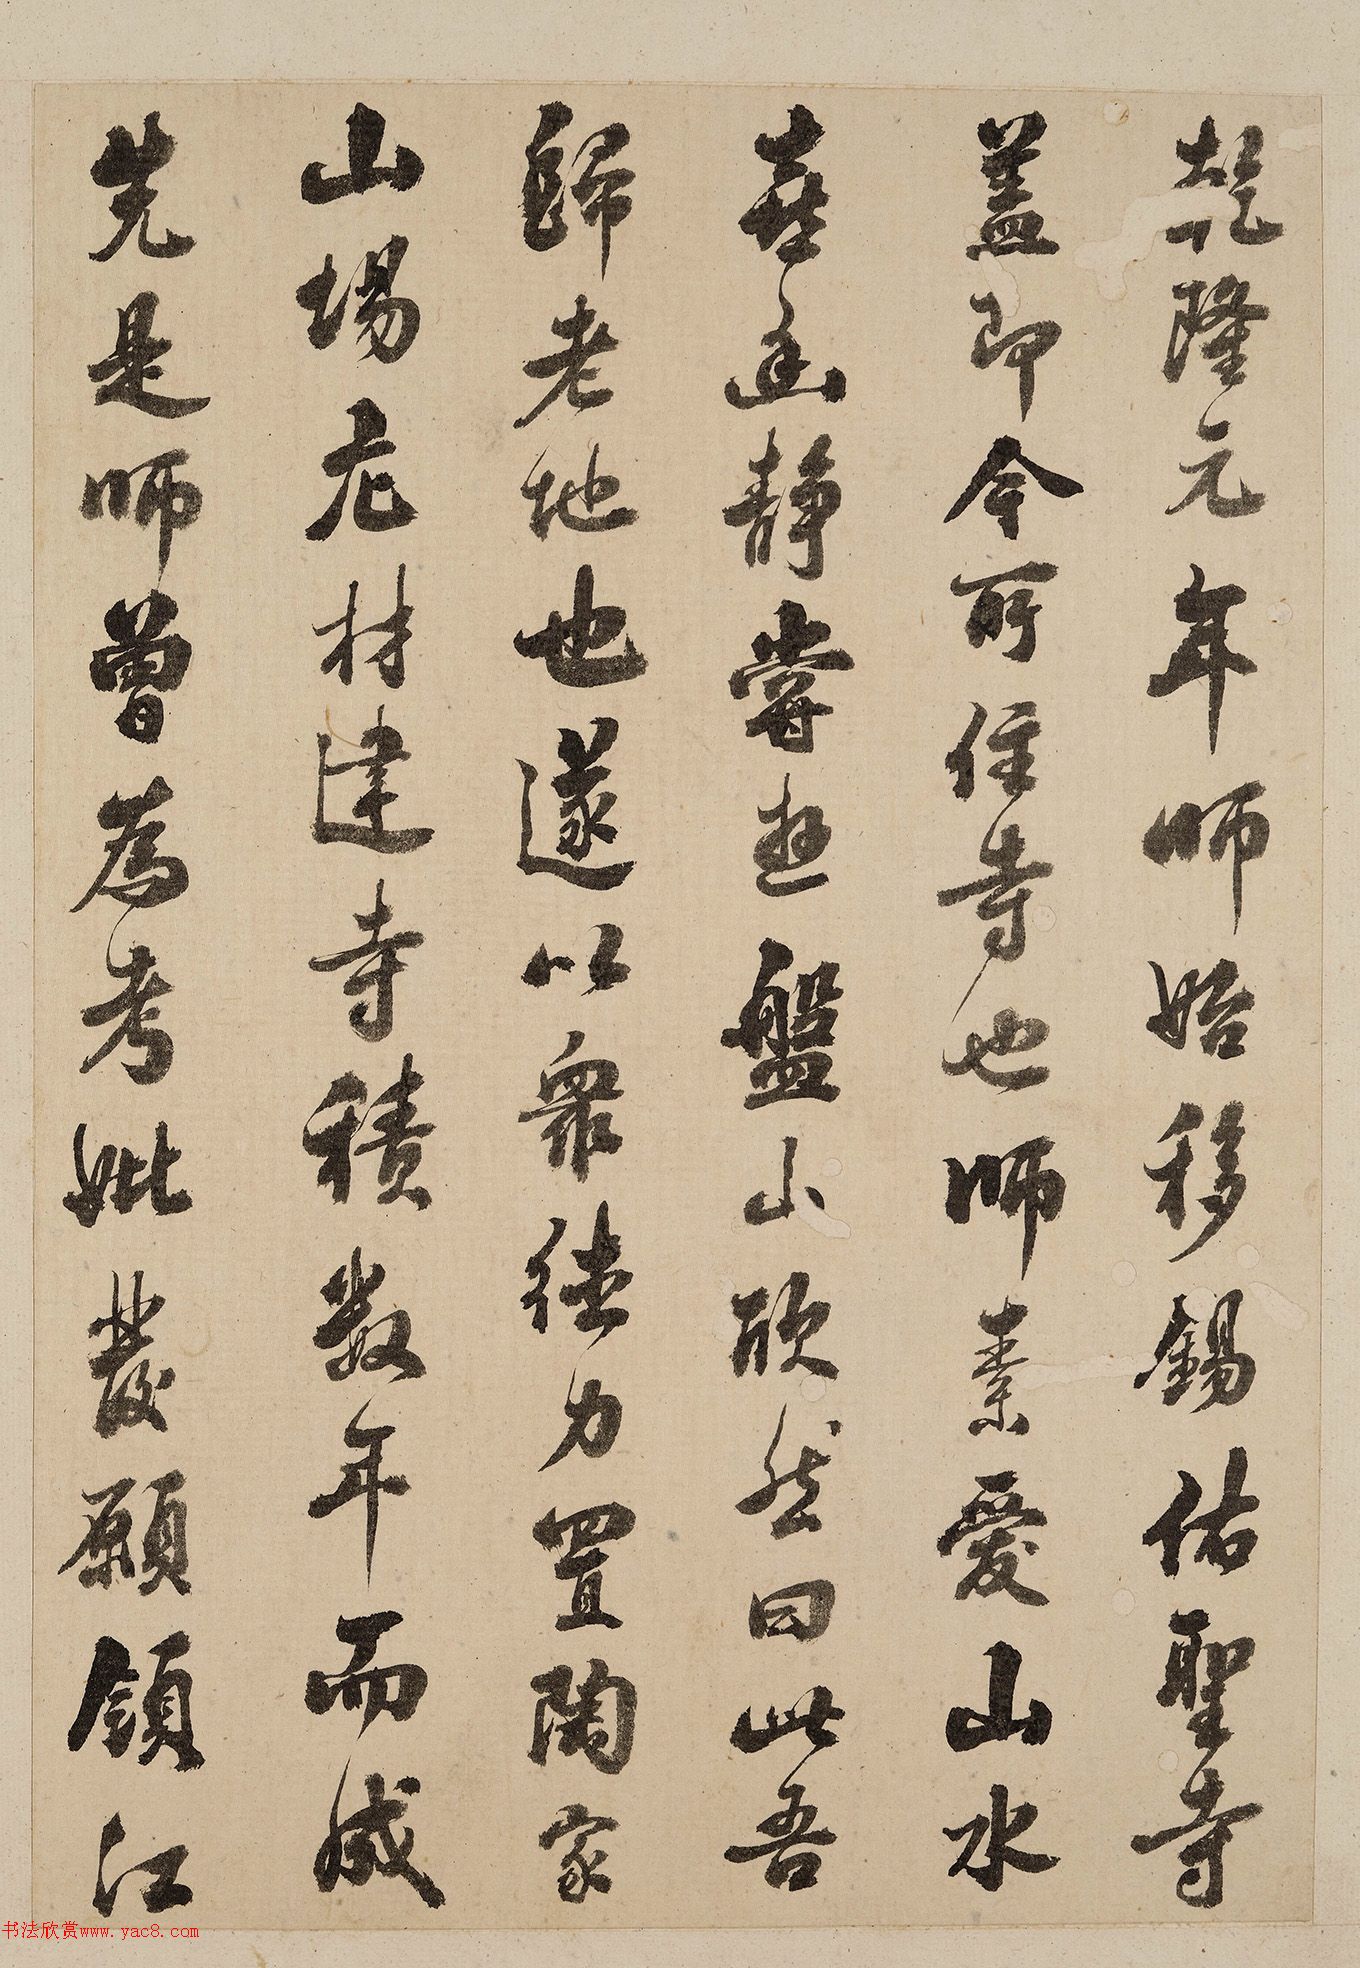 乾隆元年師始移錫佑聖寺
蓋即今所住寺也師素愛山水
喜幽靜嘗遊盤山欣然曰此吾
歸老地也遂以衆徒力置陶家
山場庀材建寺積數年而成
先是師曾為考妣發願領江
书法欣赏www.yac8.com